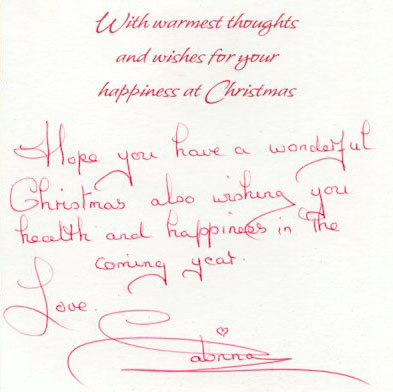 With warmest thoughts
and wishes for your
happiness at Christmas
Hope you have a wonderful
Christmas also wishing you
health and happiness in The
coming year.
Love.
Sabrina